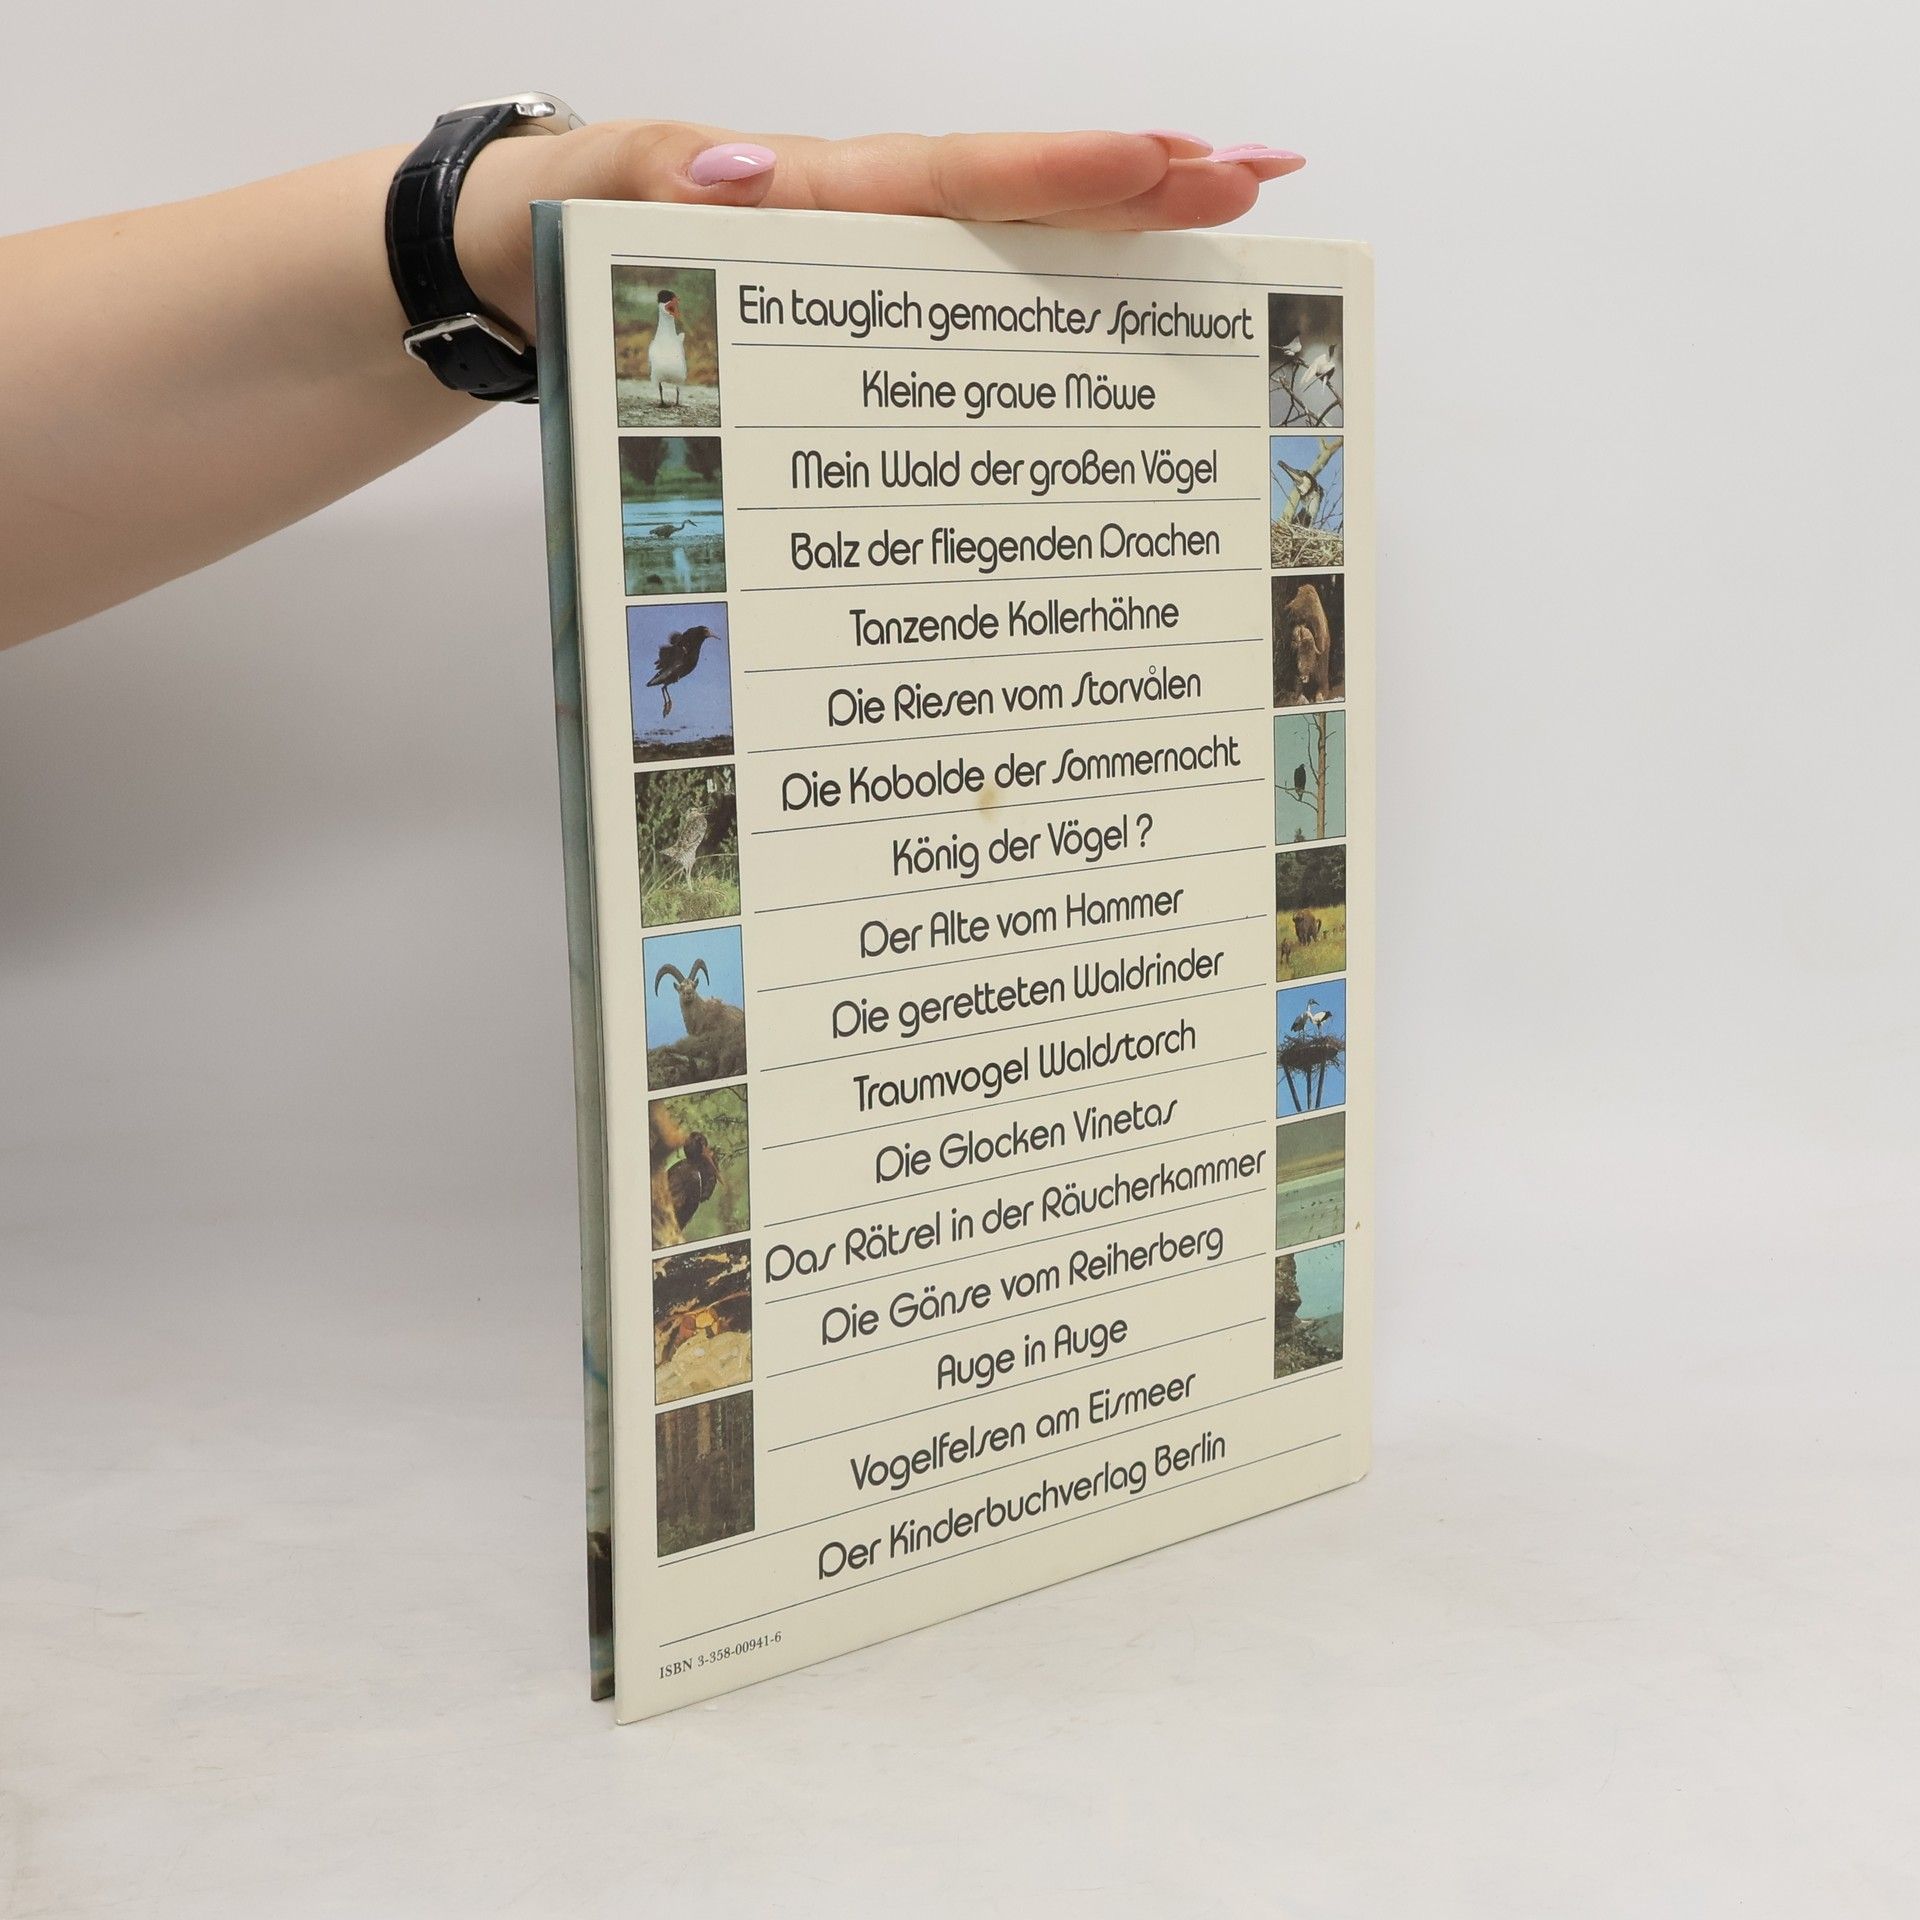 Ein tauglich gemachtes Sprichwort
Kleine graue Möwe
Mein Wald der großen Vögel
Balz der fliegenden Drachen
Tanzende Kollerhähne
Die Riesen vom Storvålen
Die Kobolde der Sommernacht
König der Vögel?
Der Alte vom Hammer
Die geretteten Waldrinder
Traumvogel Waldstorch
Die Glocken Vinetas
Das Rätsel in der Räucherkammer
Die Gänse vom Reiherberg
Auge in Auge
Vogelfelsen am Eismeer
Der Kinderbuchverlag Berlin
ISBN 3-358-00941-6